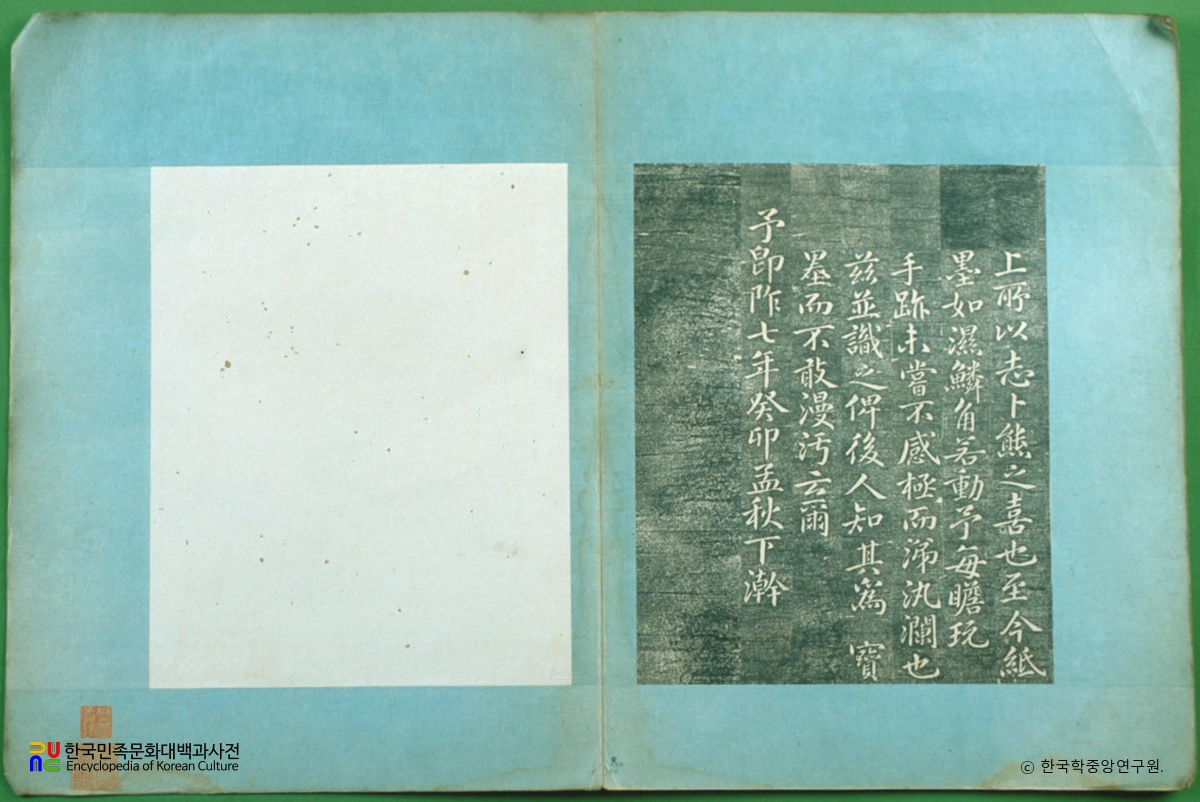 上所以志卜熊之喜也至今紙
墨如濕鱗角若動予每瞻玩
手跡未嘗不感極而涕汍瀾也
玆並識之俾後人知其爲 寶
墨而不敢漫汚云爾
予卽阼七年癸卯孟秋下澣
한국민족문화대백과사전
Encyclopedia of Korean Culture
© 한국학중앙연구원.